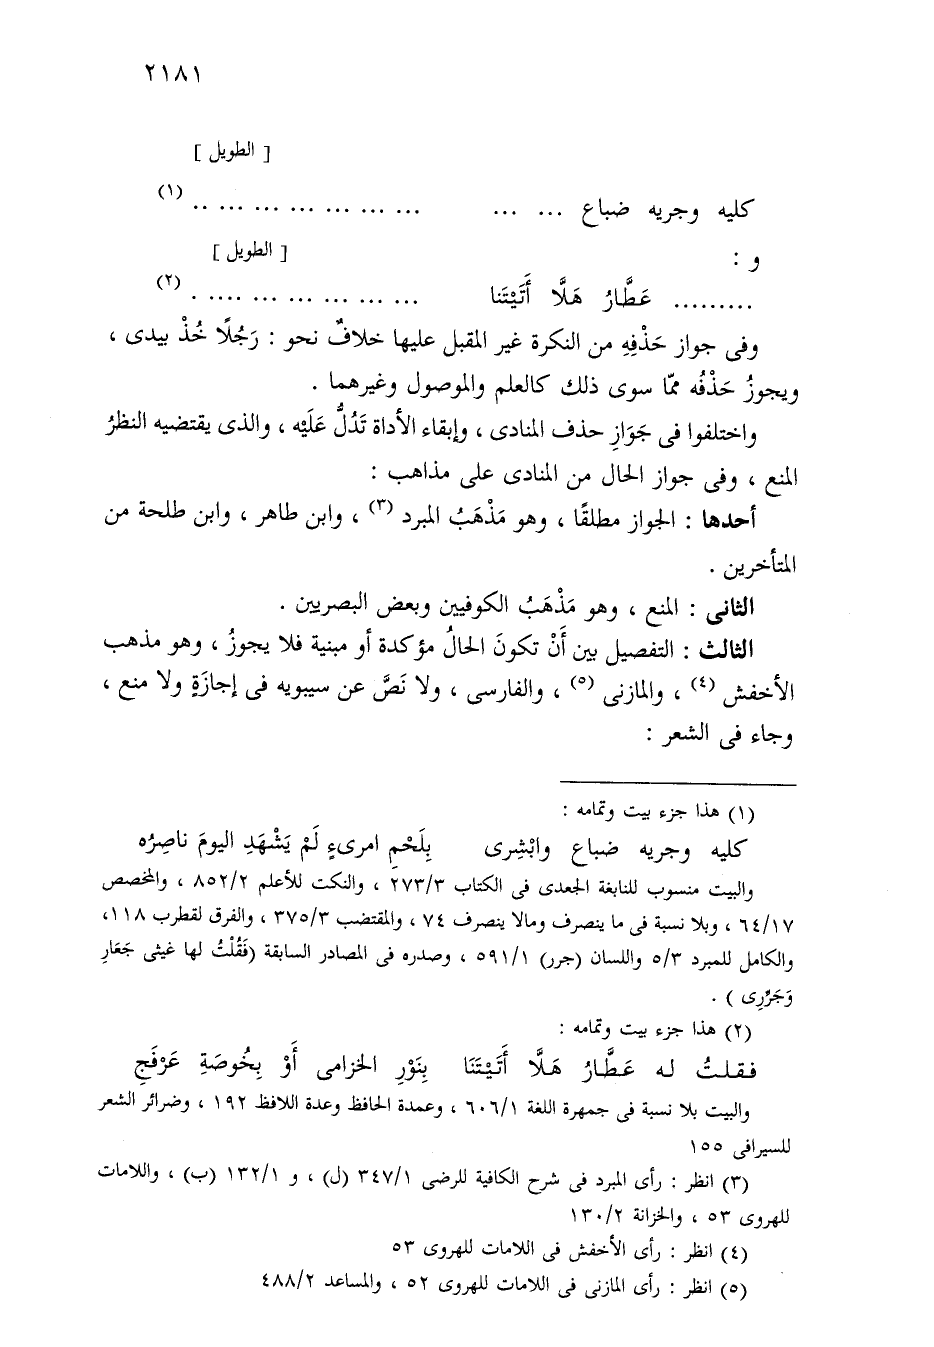 ٢١٨١
[ الطويل ]
كليه وجريه ضباع ... ... ... ... ... ... ... ... .. (١)
و : [ الطويل ]
......... عَطَّارُ هَلَّا أَتَيْتَنا ... ... ... ... .... . (٢)
وفى جواز حَذْفِهِ من النكرة غير المقبل عليها خلافٌ نحو : رَجُلًا خُذْ بيدى ،
ويجوزُ حَذْفُه ممّا سوى ذلك كالعلم والموصول وغيرهما .
واختلفوا فى جَوَازِ حذف المنادى ، وإبقاء الأداة تَدُلُّ عَلَيْه ، والذى يقتضيه النظرُ
المنع ، وفى جواز الحال من المنادى على مذاهب :
أحدها : الجواز مطلقًا ، وهو مَذْهَبُ المبرد (٣) ، وابن طاهر ، وابن طلحة من
المتأخرين .
الثانى : المنع ، وهو مَذْهَبُ الكوفيين وبعض البصريين .
الثالث : التفصيل بين أَنْ تكونَ الحالُ مؤكدة أو مبنية فلا يجوزُ ، وهو مذهب
الأخفش (٤) ، والمازنى (٥) ، والفارسى ، ولا نَصَّ عن سيبويه فى إجازَةٍ ولا منع ،
وجاء فى الشعر :
(١) هذا جزء بيت وتمامه :
كليه وجريه ضباع وابْشِرى بِلَحْمِ امرىءٍ لَمْ يَشْهَدِ اليومَ ناصِرُه
والبيت منسوب للنابغة الجعدى فى الكتاب ٢٧٣/٣ ، والنكت للأعلم ٨٥٢/٢ ، والمخصص
٦٤/١٧ ، وبلا نسبة فى ما ينصرف ومالا ينصرف ٧٤ ، والمقتضب ٣٧٥/٣ ، والفرق لقطرب ١١٨،
والكامل للمبرد ٥/٣ واللسان (جرر) ٥٩١/١ ، وصدره فى المصادر السابقة (فَقُلْتُ لها عيثى جَعَارِ
وَجَرِّرِى ) .
(٢) هذا جزء بيت وتمامه :
فقلتُ له عَطَّارُ هَلَّا أَتَيْتَنَا بِنَوْرِ الخزامى أَوْ بِخُوصَةِ عَرْفَجِ
والبيت بلا نسبة فى جمهرة اللغة ٦٠٦/١ ، وعمدة الحافظ وعدة اللافظ ١٩٢ ، وضرائر الشعر
للسيرافى ١٥٥
(٣) انظر : رأى المبرد فى شرح الكافية للرضى ٣٤٧/١ (ل) ، و ١٣٢/١ (ب) ، واللامات
للهروى ٥٣ ، والخزانة ١٣٠/٢
(٤) انظر : رأى الأخفش فى اللامات للهروى ٥٣
(٥) انظر : رأى المازنى فى اللامات للهروى ٥٢ ، والمساعد ٤٨٨/٢